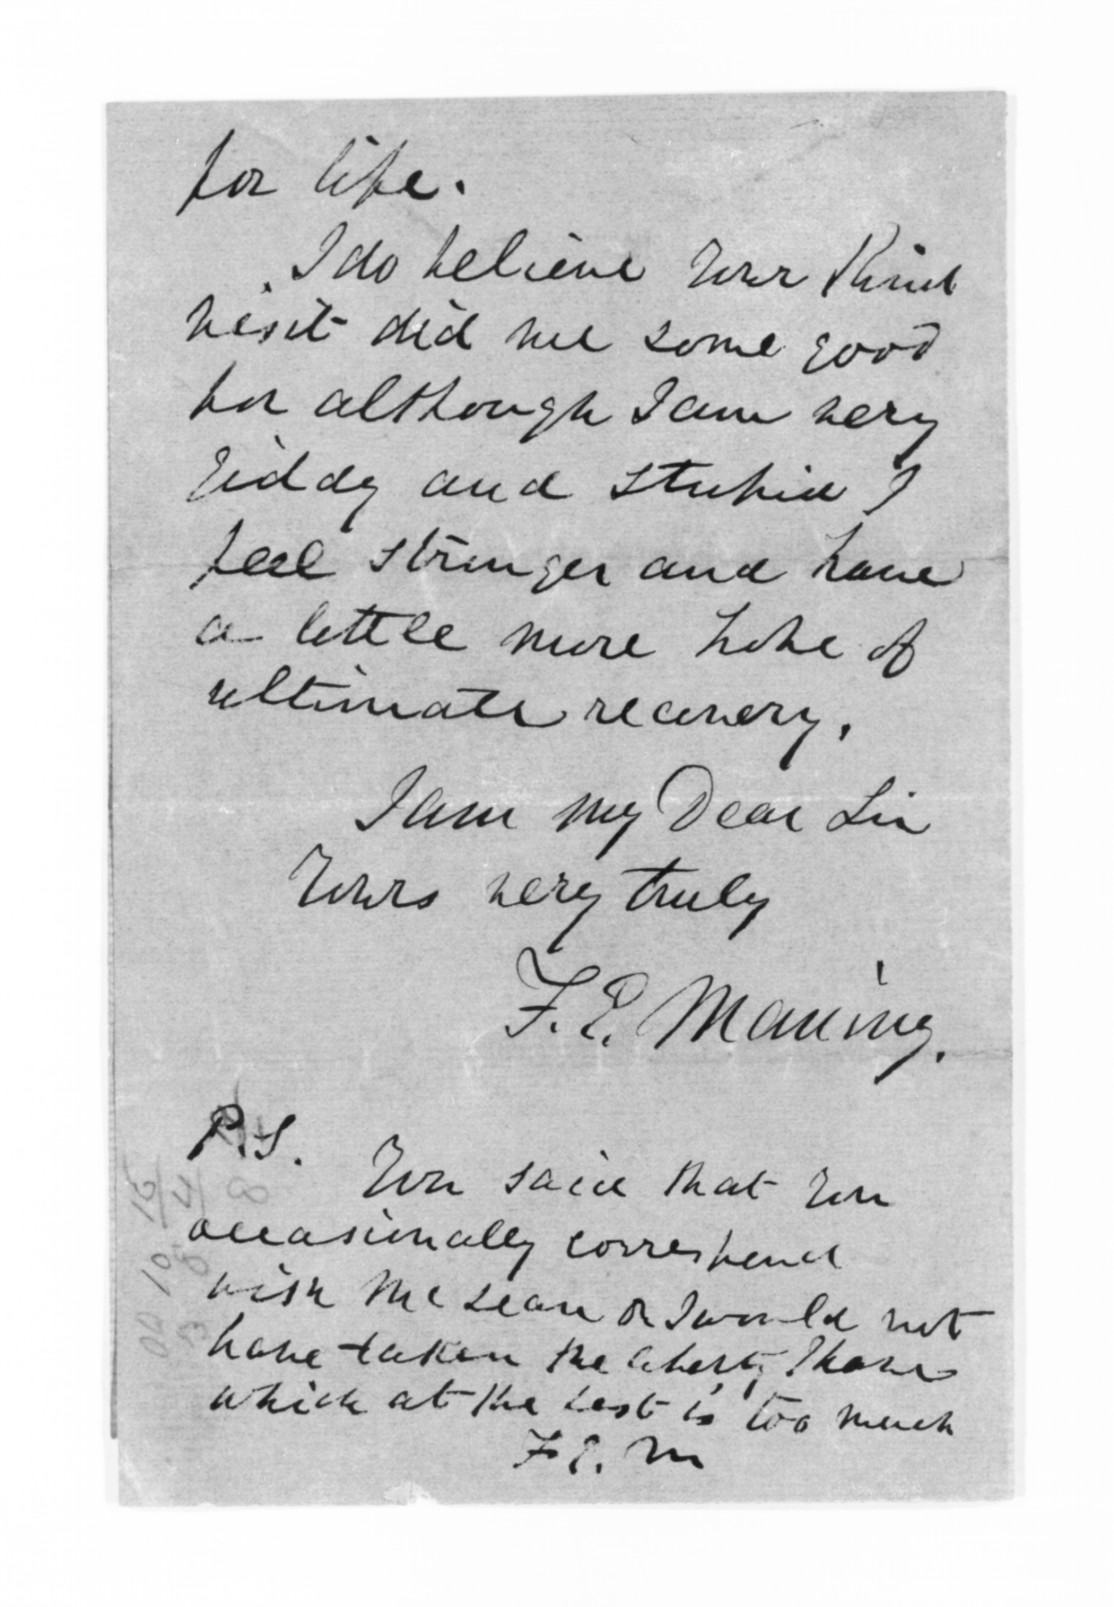 for life.
I do believe your kind
visit did me some good
for although I am very
giddy and stupid I
feel stronger and have
a little more hope of
ultimate recovery.
I am my Dear Sir
Yours very truly
F. E. Maning.
P.S.
You said that you
occasionally correspond
with McLean or I would not
have taken the liberty I have
which at the best is too much
F E. M